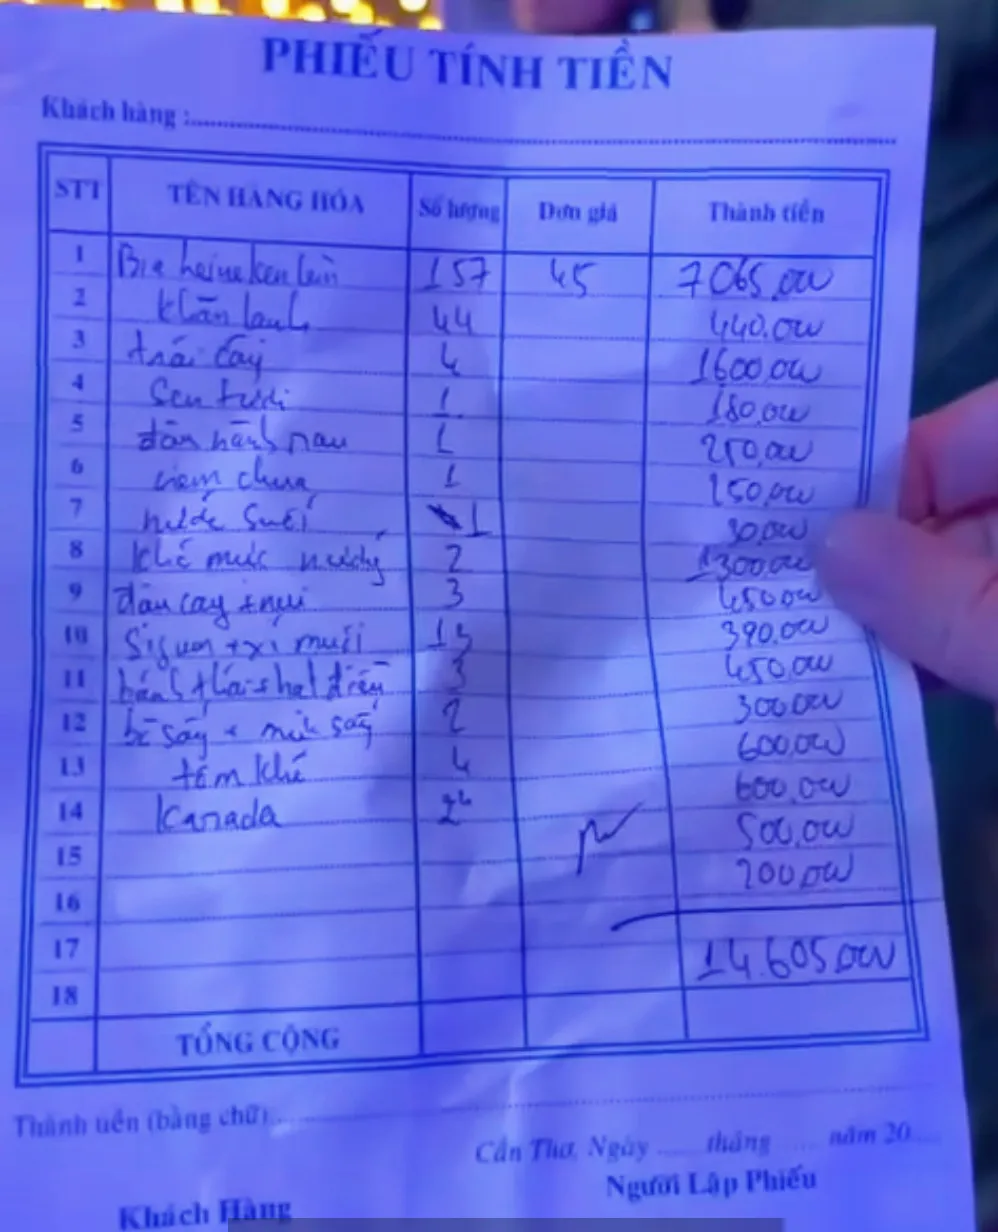 PHIẾU TÍNH TIỀN
Khách hàng :
STT TÊN HÀNG HÓA Số lượng Đơn giá Thành tiền
1 Bia heineken lùn 157 45 7065.000
2 Khăn lạnh 44 440.000
3 trái cây 4 1600.000
4 Sen tươi 1 180.000
5 1 250.000
6 nem chua 1 250.000
7 nước suối 1 30.000
8 Khô mực nướng 2 1300.000
9 3 450.000
10 xí muội 13 390.000
11 bánh thái + hạt điều 3 450.000
12 bò sấy + mực sấy 2 300.000
13 tôm khô 4 600.000
14 Canada 24 600.000
15 500.000
16 200.000
17 14.605.000
18
TỔNG CỘNG
Thành tiền (bằng chữ)
Cần Thơ, Ngày tháng năm 20
Khách Hàng Người Lập Phiếu